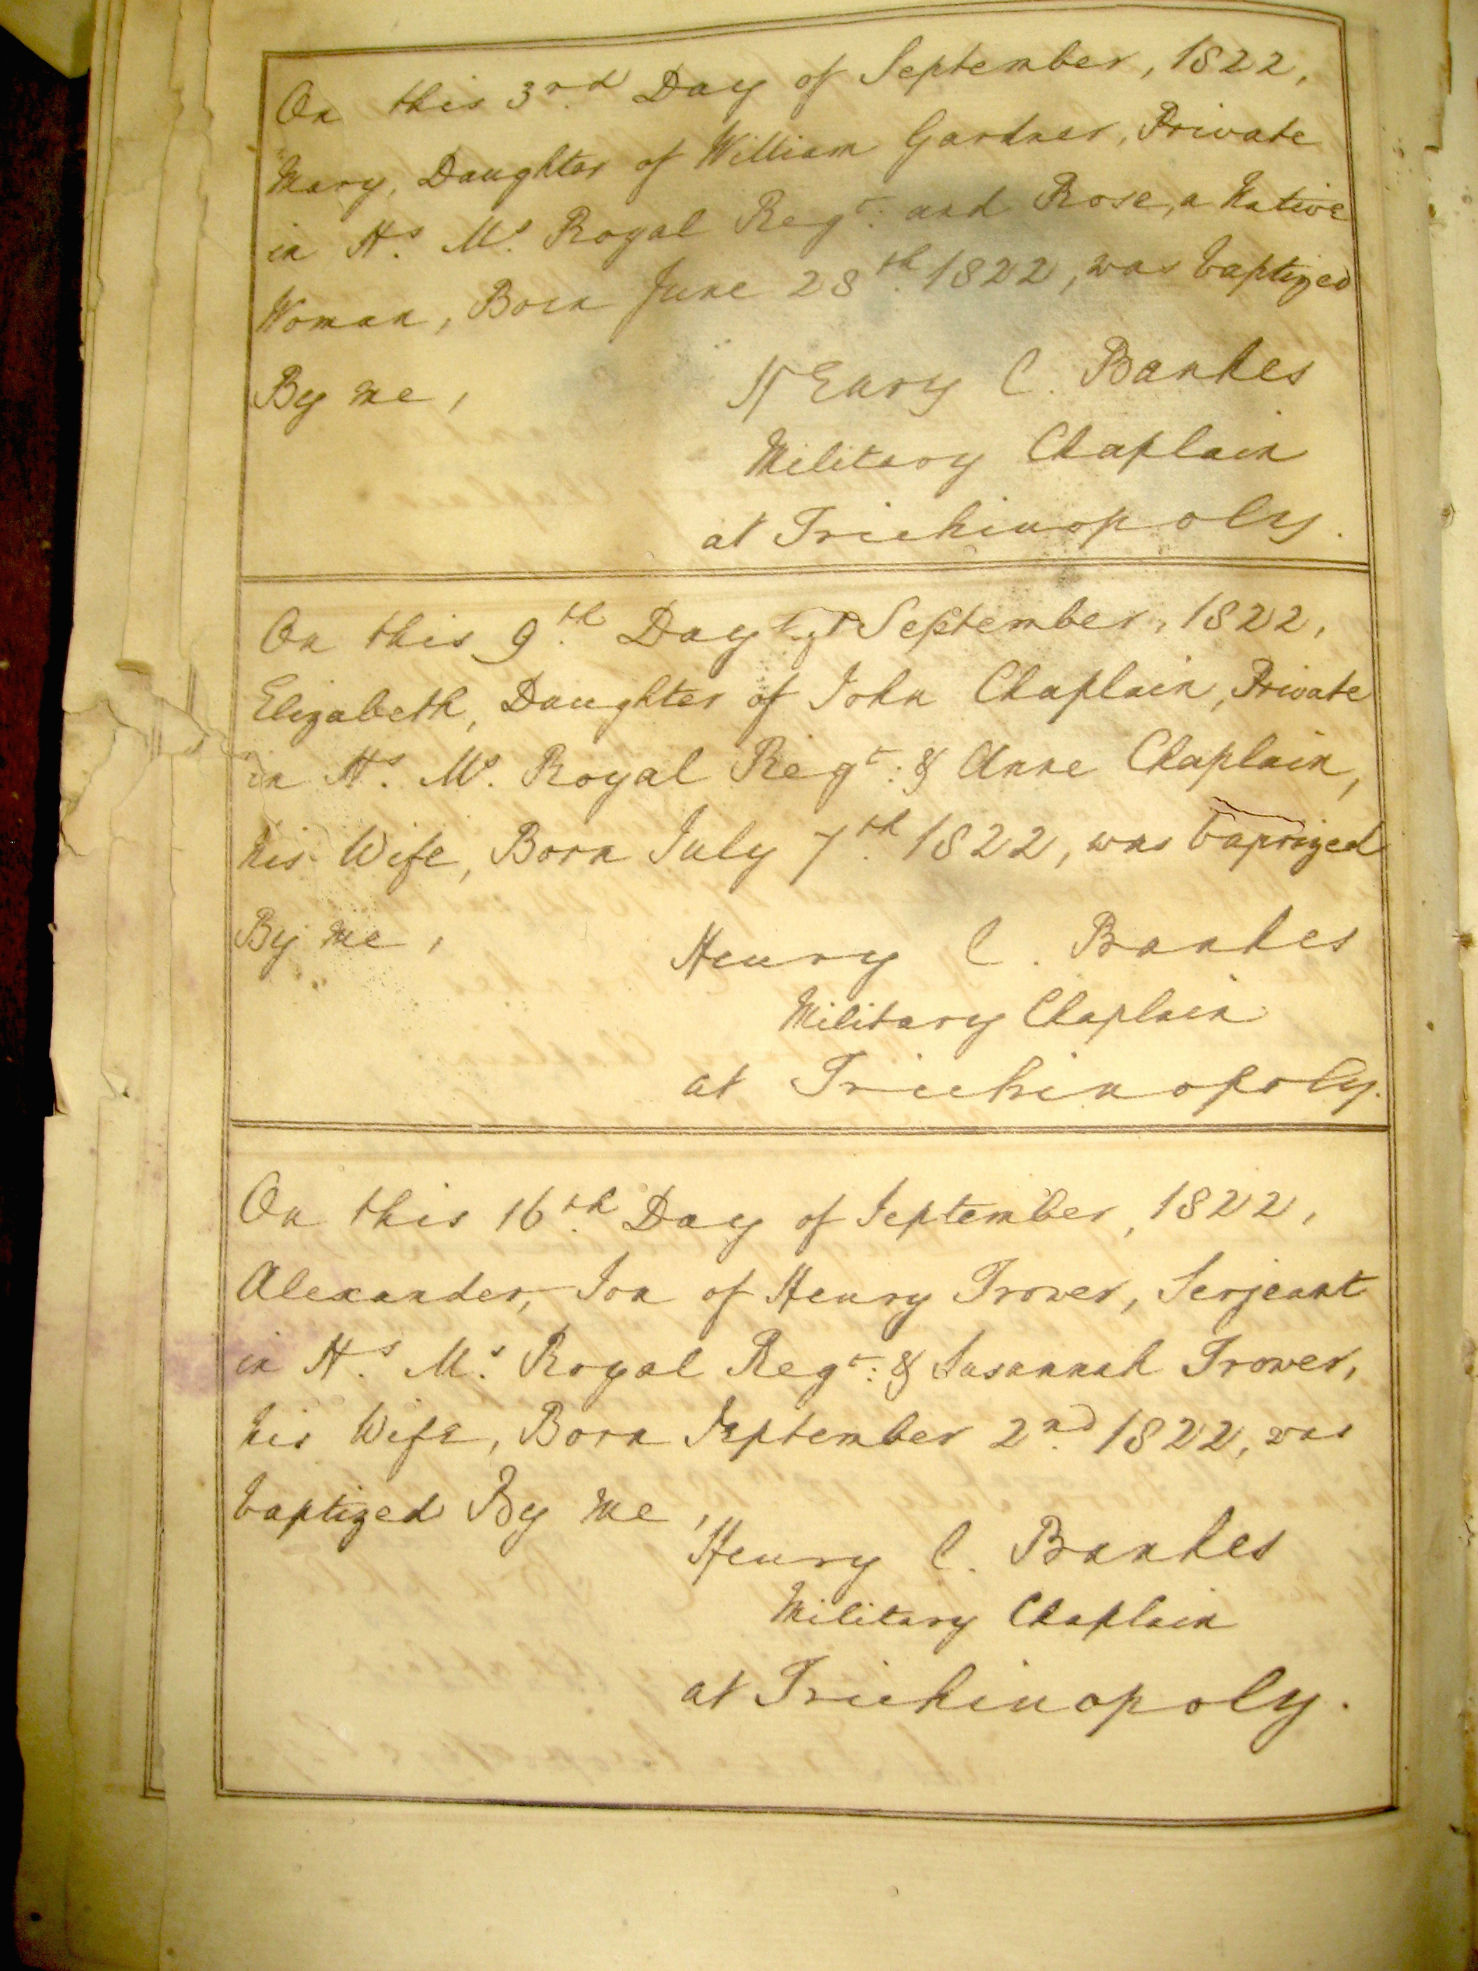 On this 3rd Day of September, 1822,
Mary, Daughter of William Gardner, Private
in H.s M.s Royal Regt: and Rose, a Native
Woman, Born June 28th. 1822, was baptized
By me,
Henry C. Bankes
Military Chaplain
at Trichinopoly.
On this 9th. Day of September, 1822,
Elizabeth, Daughter of John Chaplain, Private
in H.s M.s Royal Regt: & Anne Chaplain,
his Wife, Born July 7th. 1822, was baptized
By me,
Henry C. Bankes
Military Chaplain
at Trichinopoly.
On this 16th. Day of September, 1822,
Alexander, Son of Henry Trower, Serjeant
in H.s M.s Royal Regt: & Susannah Trower,
his Wife, Born September 2nd. 1822, was
baptized By me,
Henry C. Bankes
Military Chaplain
at Trichinopoly.